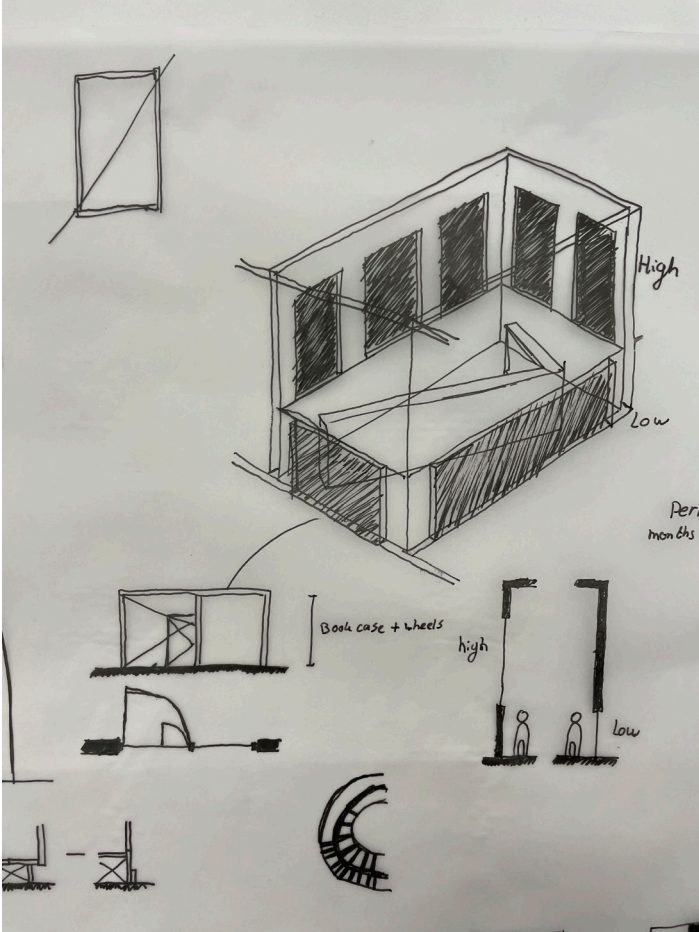 High
Low
Per
months
Book case + wheels
high
Low